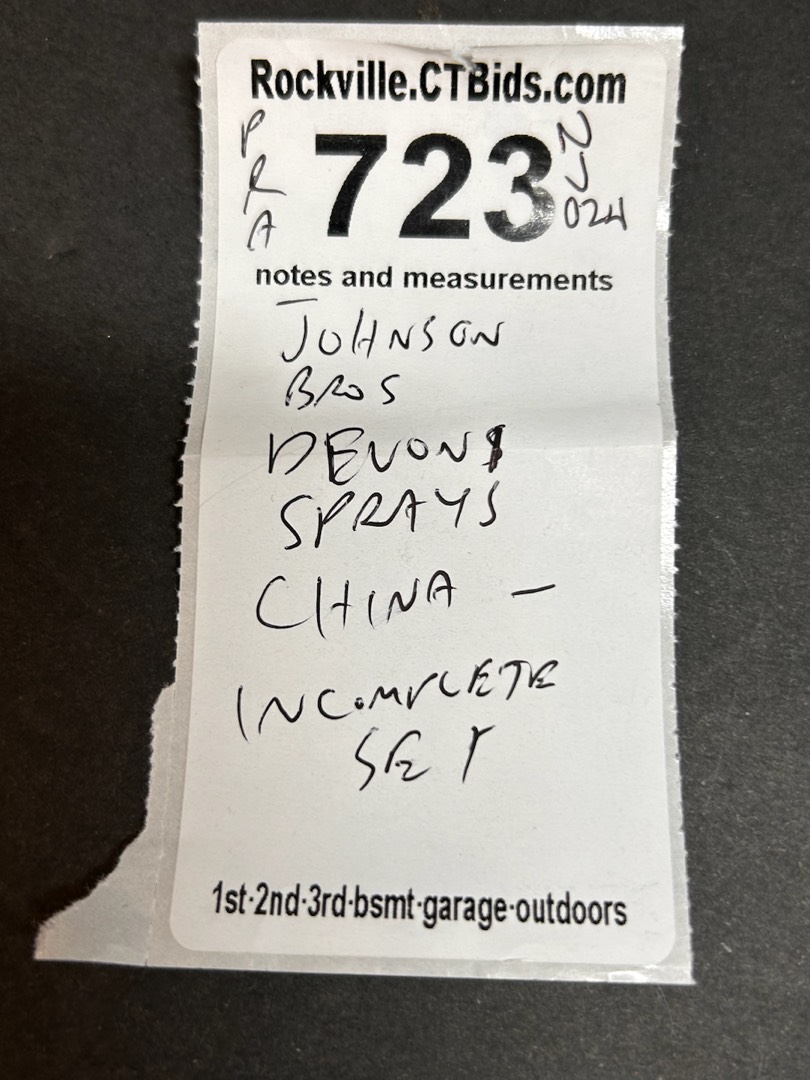 Rockville.CTBids.com
PRA
723
024
notes and measurements
JOHNSON
BROS
DEVON
SPRAYS
CHINA –
INCOMPLETE
SET
1st·2nd·3rd·bsmt·garage·outdoors